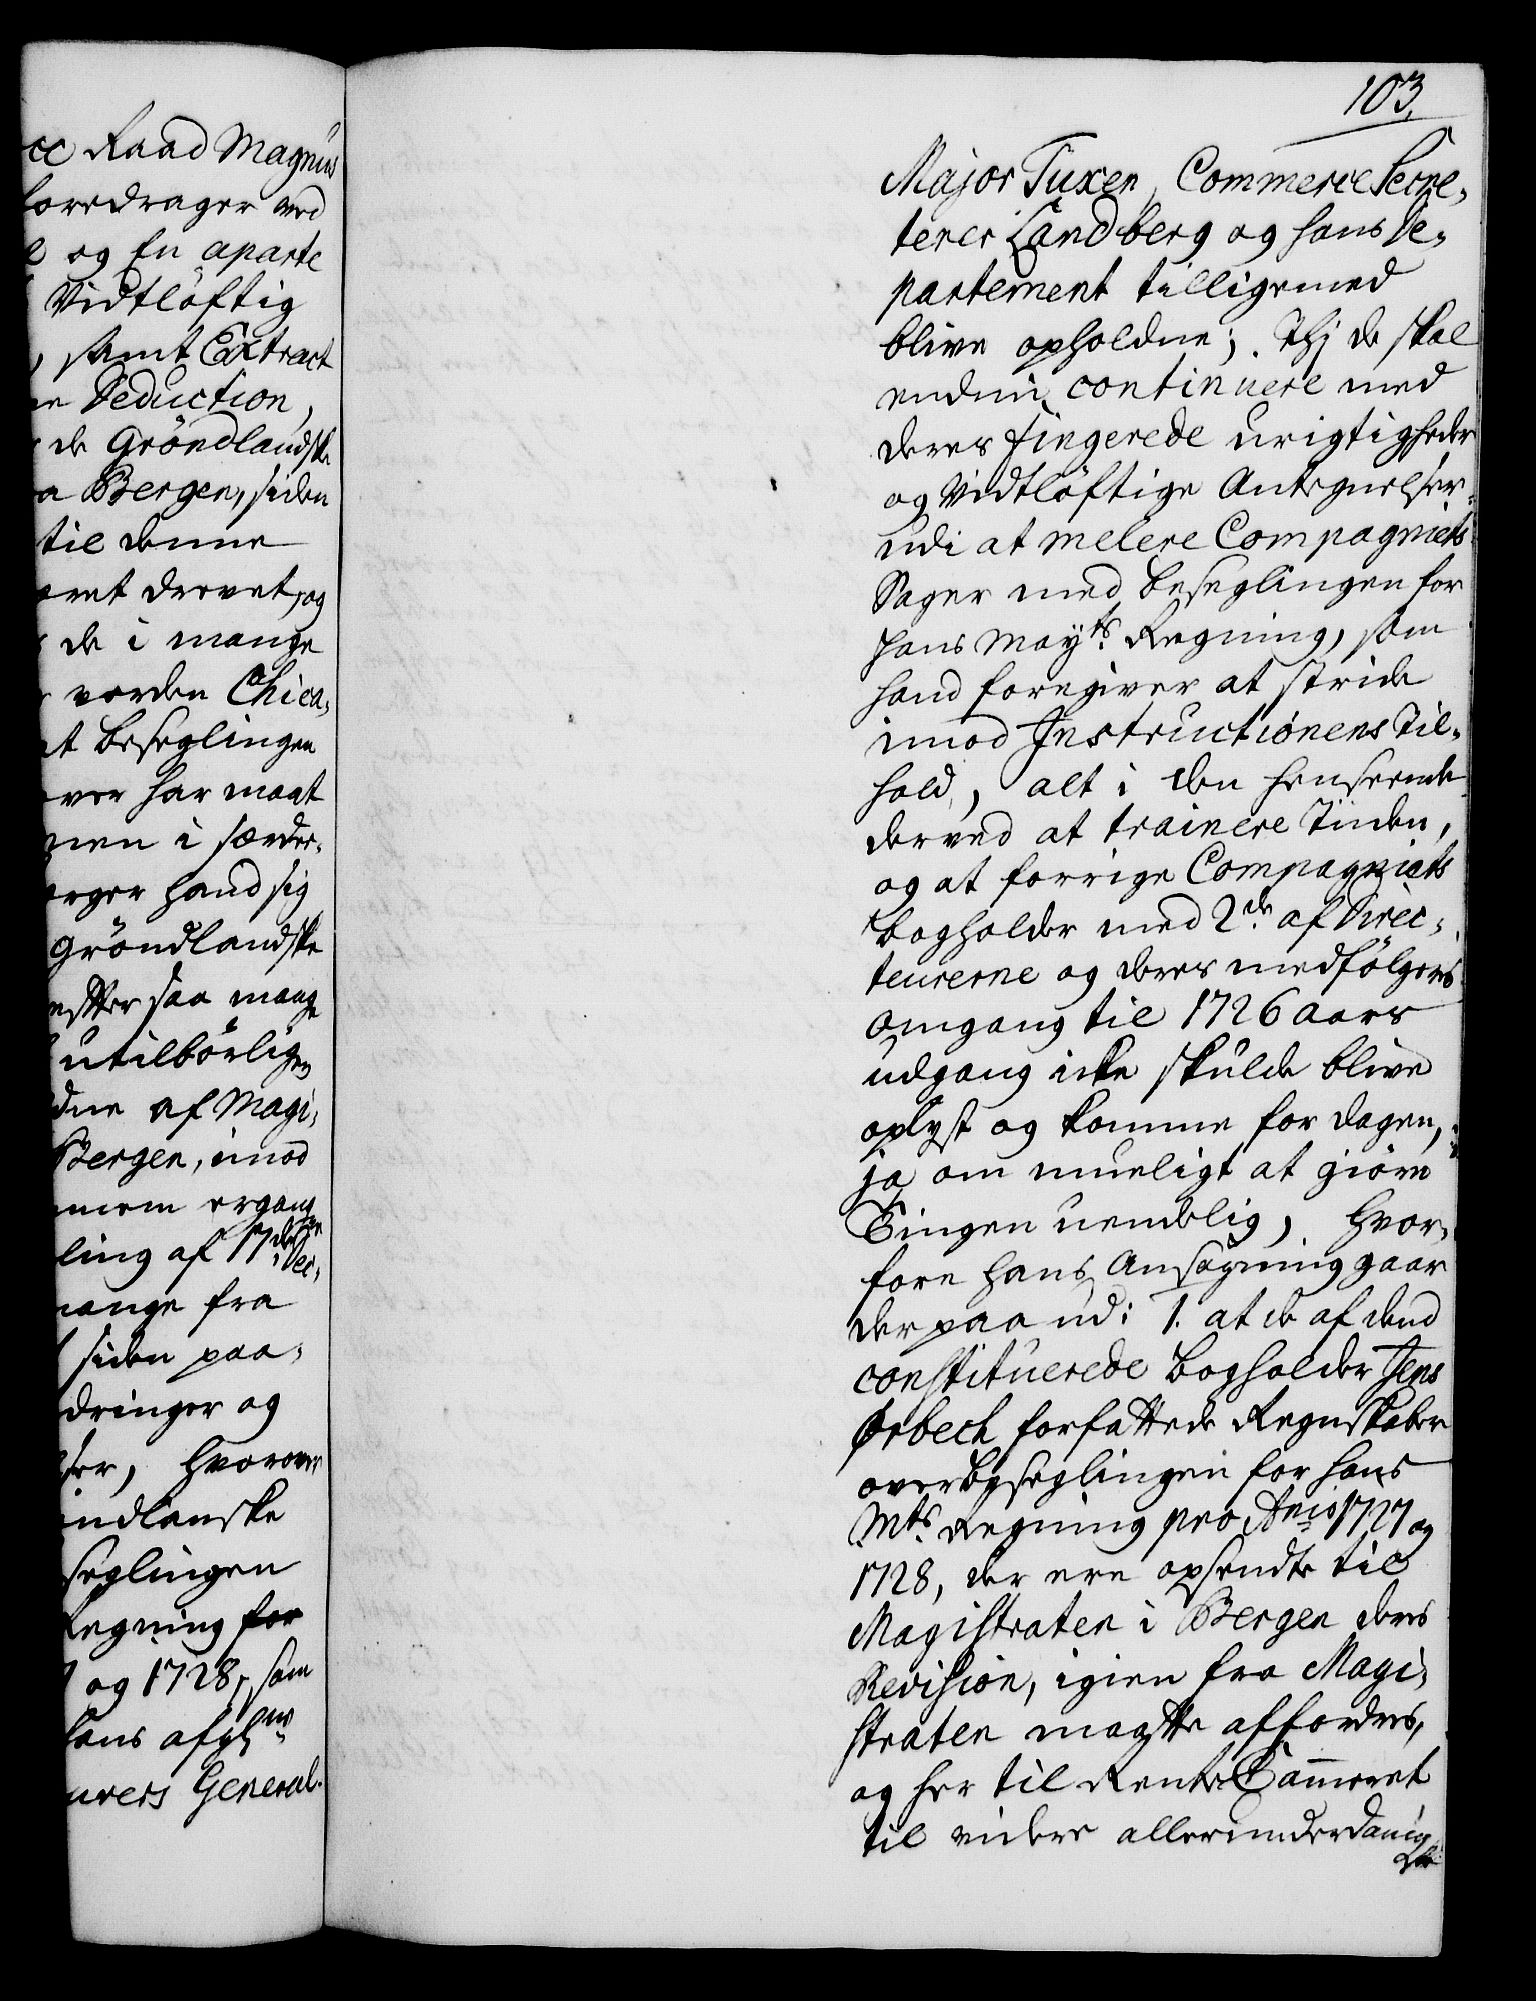 cc Raad Magnus
foredrager med
og En aparte
Vidtløftig
, samt Extract
Deduction,
de Gröndlandske
a Bergen, siden
til denne
været drevet, og
de i mange
vorden Chica-
at beseglingen
over har maat
nen i særder-
hand sig
Gröndlandske
efter saa mange
utilbörligen
af Magi-
Bergen, imod
ergangne
ling af 17de Dec-
mange fra
siden paa-
dringer og
ser, hvorover
indlanske
seglingen
Regning for
og 1728, som
hans afgl:
uvers General-
103.
Major Tuxen, Commerce Secre-
terer Landberg og hans De-
partement tilligemed
blive opholdne; Thj de skal
endnu continuere med
deres fingerede urigtigheder
og Vidtlöftige Antegnelser
udi at melere Compagniets
Sager med beseglingen for
Hans Mayts Regning, som
hand foregiver at stride
imod Instructionens Til-
hold, alt i den henseende
derved at trainere Tiiden,
og at forrige Compagniets
bogholder med 2de af Direc-
teurerne og deres medfölgeres
omgang til 1726 Aars
udgang icke skulde blive
oplyst og komme for dagen,
ja om mueligt at giöre
Tingen uendelig, hvor-
fore hans Ansögning gaar
der paa ud: 1. at de af dend
constituerede bogholder Jens
Ørbech forfattede Regnskaber
over bеseglingen for hans
Mts Regning pro Anis 1727 og
1728, der ere opsendte til
Magistraten i Bergen deres
Revision, igien fra Magi-
straten maatte affordres,
og her til Rente Cammeret
til videre allerunderdanig